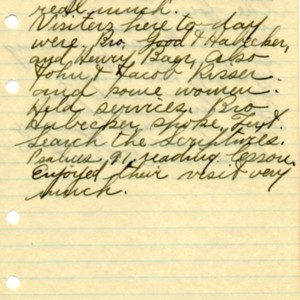 read much.
Visiters here to day
were, Bro, Good & Habecker,
and Henry Baer, also
John & Jacob Risser
and some women.
Held services. Bro
Habecker spoke, Text.
search the scriptures.
Psalms, 91, reading lesson
Enjoyed their visit very
much.